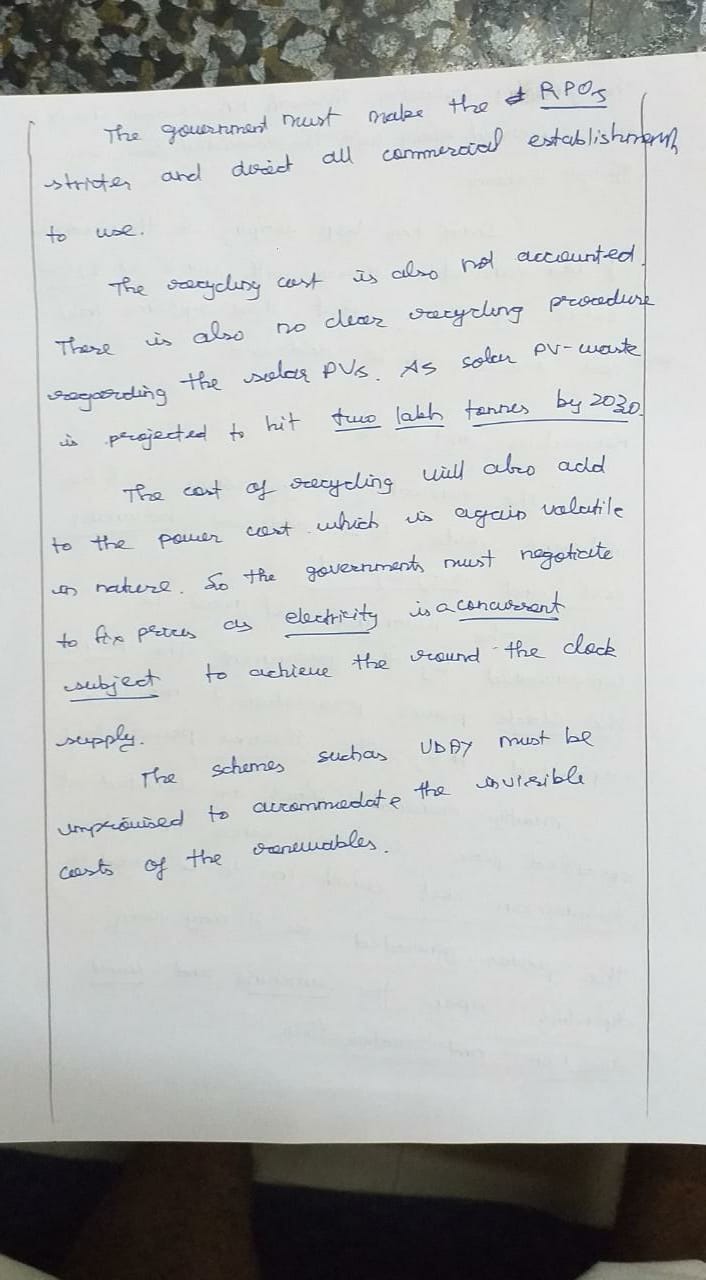 The government must make the RPOs
stricter and direct all commercial establishments
to use.
The recycling cost is also not accounted.
There is also no clear recycling procedure
regarding the solar PVs. As solar PV-waste
is projected to hit two lakh tonnes by 2030.
The cost of recycling will also add
to the power cost which is again volatile
in nature. So the governments must negotiate
to fix prices as electricity is a concurrent
subject to achieve the round the clock
supply.
The schemes such as UDAY must be
improvised to accommodate the invisible
costs of the renewables.